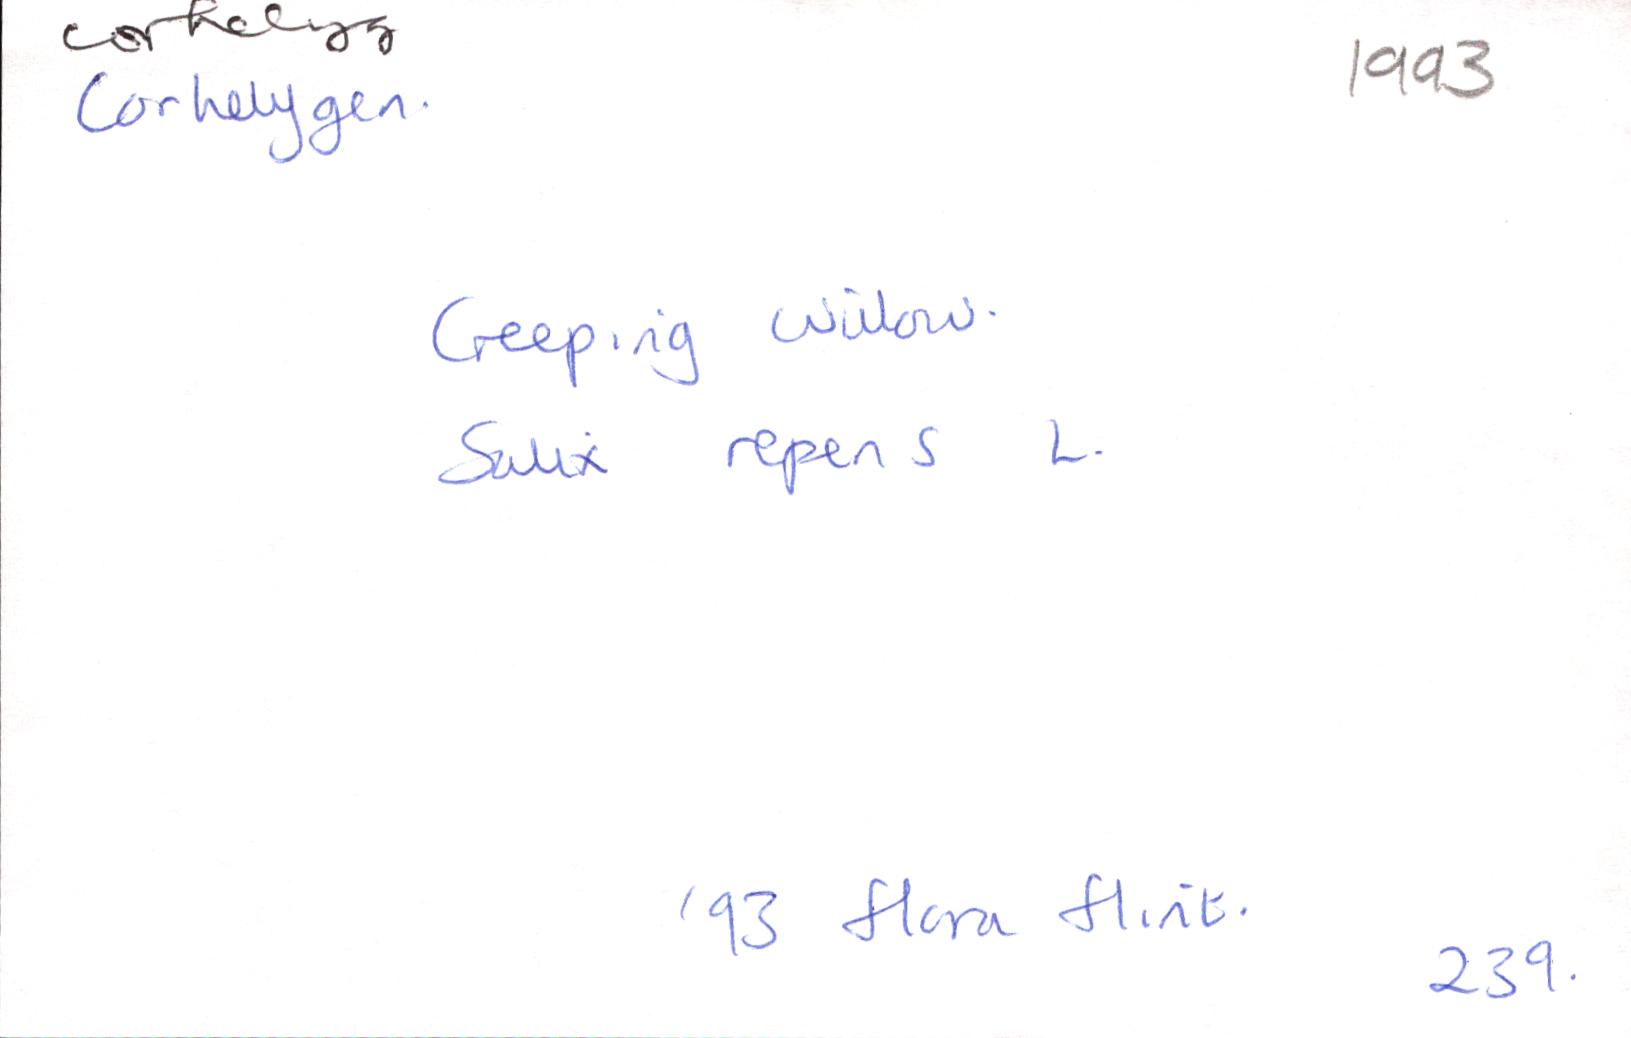 corhelyg
1993
Corhelygen.
Creeping willow.
Salix repens L.
'93 flora flint.
239.